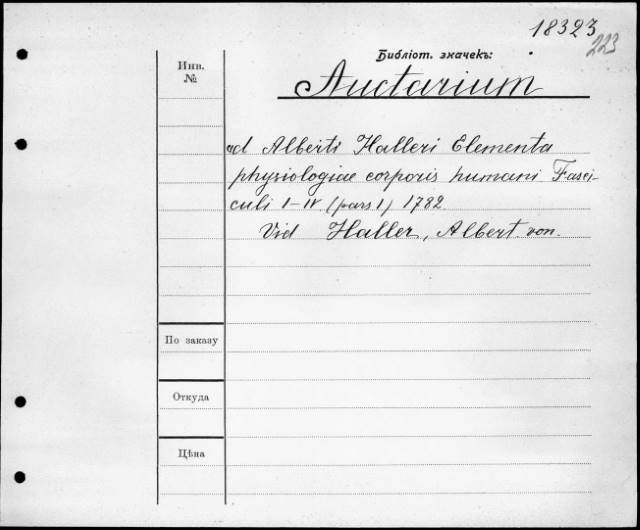 18323
223
Библіот. значекъ:
Auctarium
Инв.
№
ad Alberti Halleri Elementa
physiologiae corporis humani Fasci-
culi I-IV. (pars 1) 1782.
Vid Haller, Albert von.
По заказу
Откуда
Цѣна